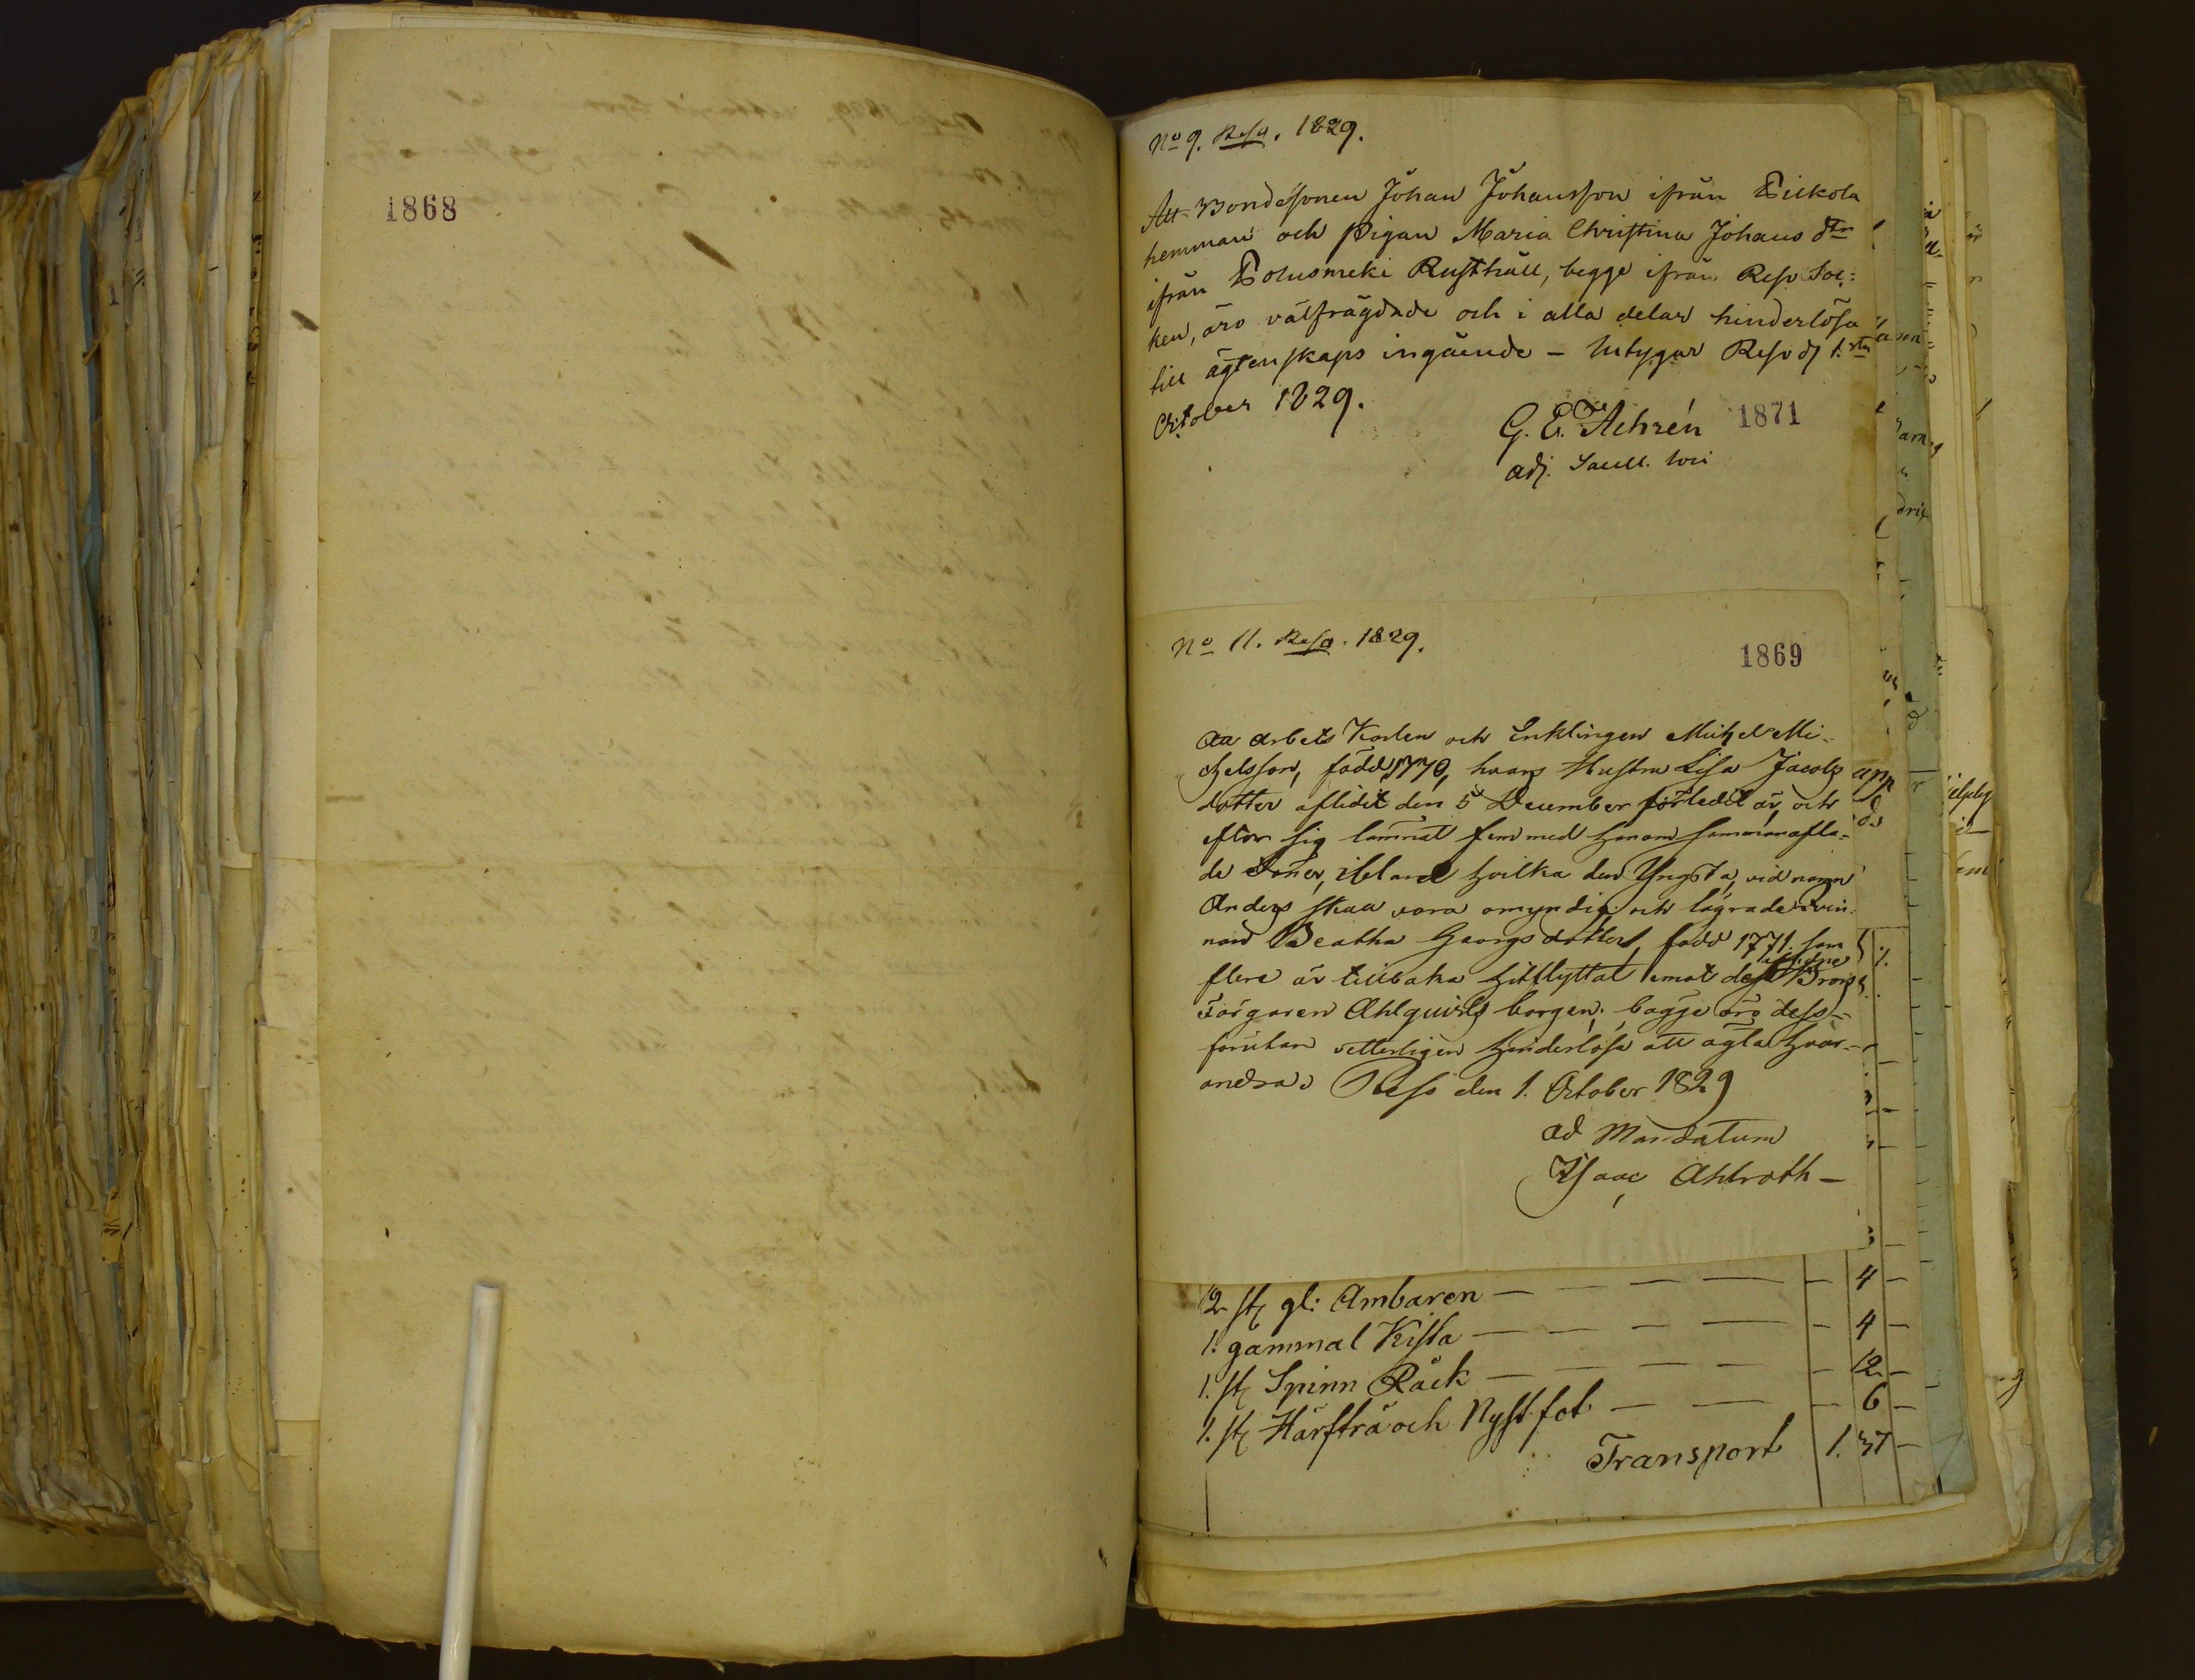 1868
No 9. Reso. 1829.
Att Bondesonen Johan Johansson ifrån Pilkola
hemman och Pigan Maria Christina Johans dtr
ifrån Polusmeki Rusthåll, begge ifrån Reso Soc:
ken, äro välfrägdade och i alla delar hinderlösa
till ägtenskaps ingående – Intygar Reso d 1.sta
October 1829.
G. E. Achrén
1871
adj. Sacell.
No 11. Reso. 1829.
1869
Att Arbets Karlen och Enklingen Michel Mi-
chelsson, född 1770, hvars Hustru Lisa Jacobs
dotter aflidit den 5 December förledit år, och
efter sig lämnat fem med honom sammanafla-
de Söner, ibland hvilka den Yngsta, vid namn
Anders skall vara omyndig och lägrade qvin-
nan Beatha Georgsdotter, född 1771. som
flere år tillbaka hitflyttat emot dess aflidne Brors
Färgaren Ahlqvists borgen; bägge äro dess-
förutan vetterligen hinderlösa att ägta hvar-
andra. Reso den 1. October 1829
ad Mandatum
Isaac Ahlroth –
2 st gl: Ambaren – – – – – 4 –
1. gammal Kista – – – – – 4 –
1. st Spinn Råck – – – – – 12 –
1. st Härfträ och Nystfot – – – 6 –
Transport 1. 37 –